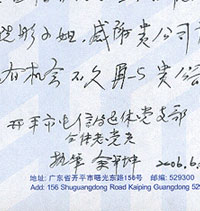 小姐,感谢贵公司
有机会不久再与贵公
开平市电信局退休党支部
全体老党员
执笔 余 2006.6.
地址: 广东省开平市曙光东路158号 邮编: 529300
Add: 156 Shuguangdong Road Kaiping Guangdong 52